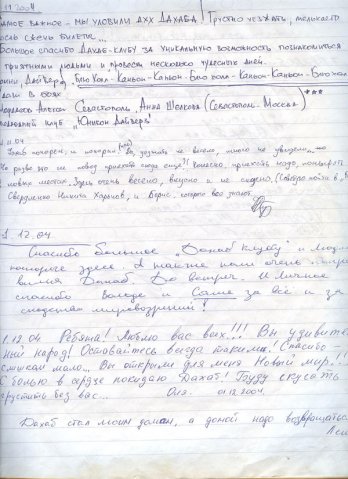 .11.2004
самое важное - мы уловили дхх Дахаба! Грустно уезжать, только
есть свечь билеты...
большое спасибо Дахаб-клубу за уникальную возможность познакомиться
приятными людьми и провести несколько чудесных дней.
Блю Холл - Каньон - Каньон - Блю холл - Каньон - Каньон - Блю холл
Севастополь, Анна Шолкова (Севастополь-Москва) ***
подводный клуб "Юнион Дайверз"
11.04
Дахаб покорен, и покорил (нас)! Да, уезжать не весело, много не увидели, но
разве это не повод приехать сюда еще?! Конечно, приехать надо, понырять
новых местах. Здесь очень весело, вкусно и не скучно.
Свердленко Никита Харьков, и Борис, которого все знают.
1.12.04
Спасибо большое "Дахаб клубу" и людям
которые здесь. А также нам очень
Дахаб. До встречи. И личное
спасибо Володе и Саше за всё и за
сходство мировоззрений!
1.12.04 Ребята! Люблю вас всех!!! Вы удивитель
ный народ! Оставайтесь всегда такими! Спасибо -
слишком мало... Вы открыли для меня Новый мир!!!
С болью в сердце покидаю Дахаб! Буду скучать,
грустить без вас... Оля. 01.12.2004.
Дахаб стал моим домом, а домой надо возвращаться